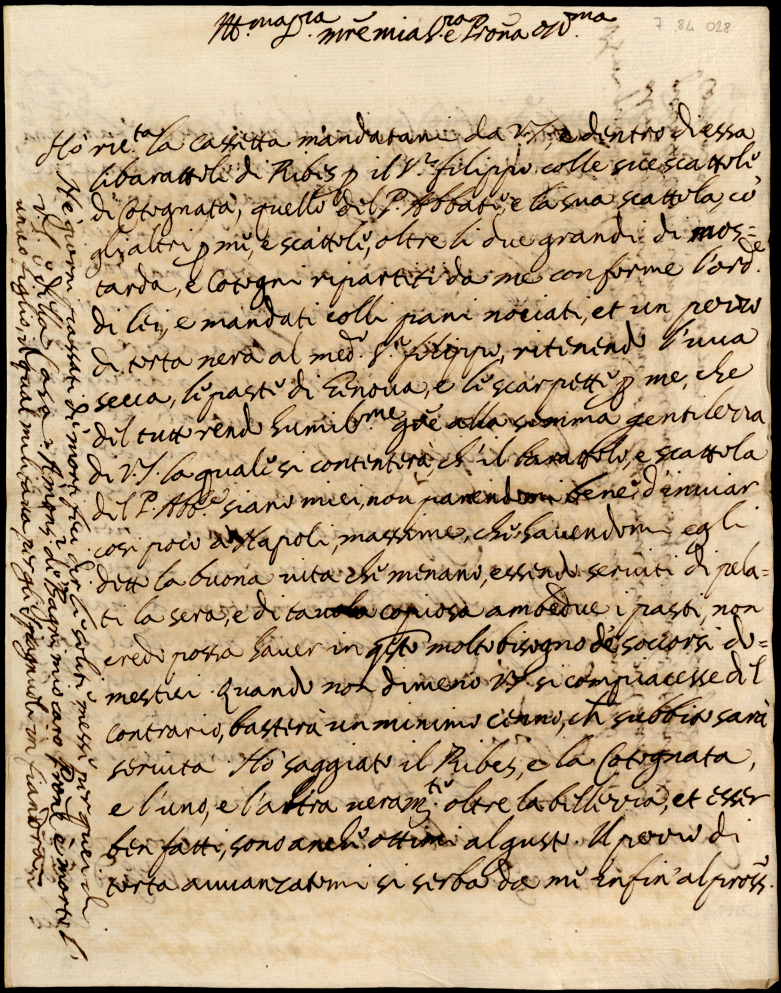 7 84 028
Ill.ma Sra mia Sra e Prona oss.ma
Ho ric.ta la cassetta mandatami da V.S. e dentro di essa
li barattoli di Ribes p il S.r Filippo colle sue scattole
di Cotognata, quello del P. Abbate, e la sua scattola, co
gli altri p mè, e scattole, oltre li due grandi di mos=
tarda, e Cotogni ripartiti da me conforme l'ord.e
di lei, e mandati colli pani nociati, et un pezzo
di torta nera al med.o S.r Filippo, ritenendo l'uva
secca, le paste di Genova, e le scarpette p me, che
del tutto rendo humil.me gre alla somma gentilezza
di V.S. la quale si contenterà, ch'il barattolo, e scattola
del P. Abb.e siano miei, non parendomi bene d'inviar
cosi poco à Napoli, massime, che havendomi egli
detto la buona vita che menano, essendo serviti di pela=
ti la sera, e di tavola copiosa ambedue i pasti, non
credo possa haver in qsto molto bisogno de soccorsi do=
mestici. Quando non dimeno V.S. si compiacesse del
contrario, basterà un minimo cenno, che subbito sarà
servita. Hò saggiato il Ribes, e la Cotognata,
e l'uno, e l'altra veram.te oltre la bellezza, et esser
ben fatti, sono anche ottimi al gusto. Il pezzo di
torta avvanzatomi si serba da me infin' al pross.
Ne giorni passati de morti feci dir le solite messe per quei di
V.S. e della Casa. A mons.r di Bagni mio caro Prone è morto l'
unico figlio, il qual militava per gli Spagnuoli in Fiandra